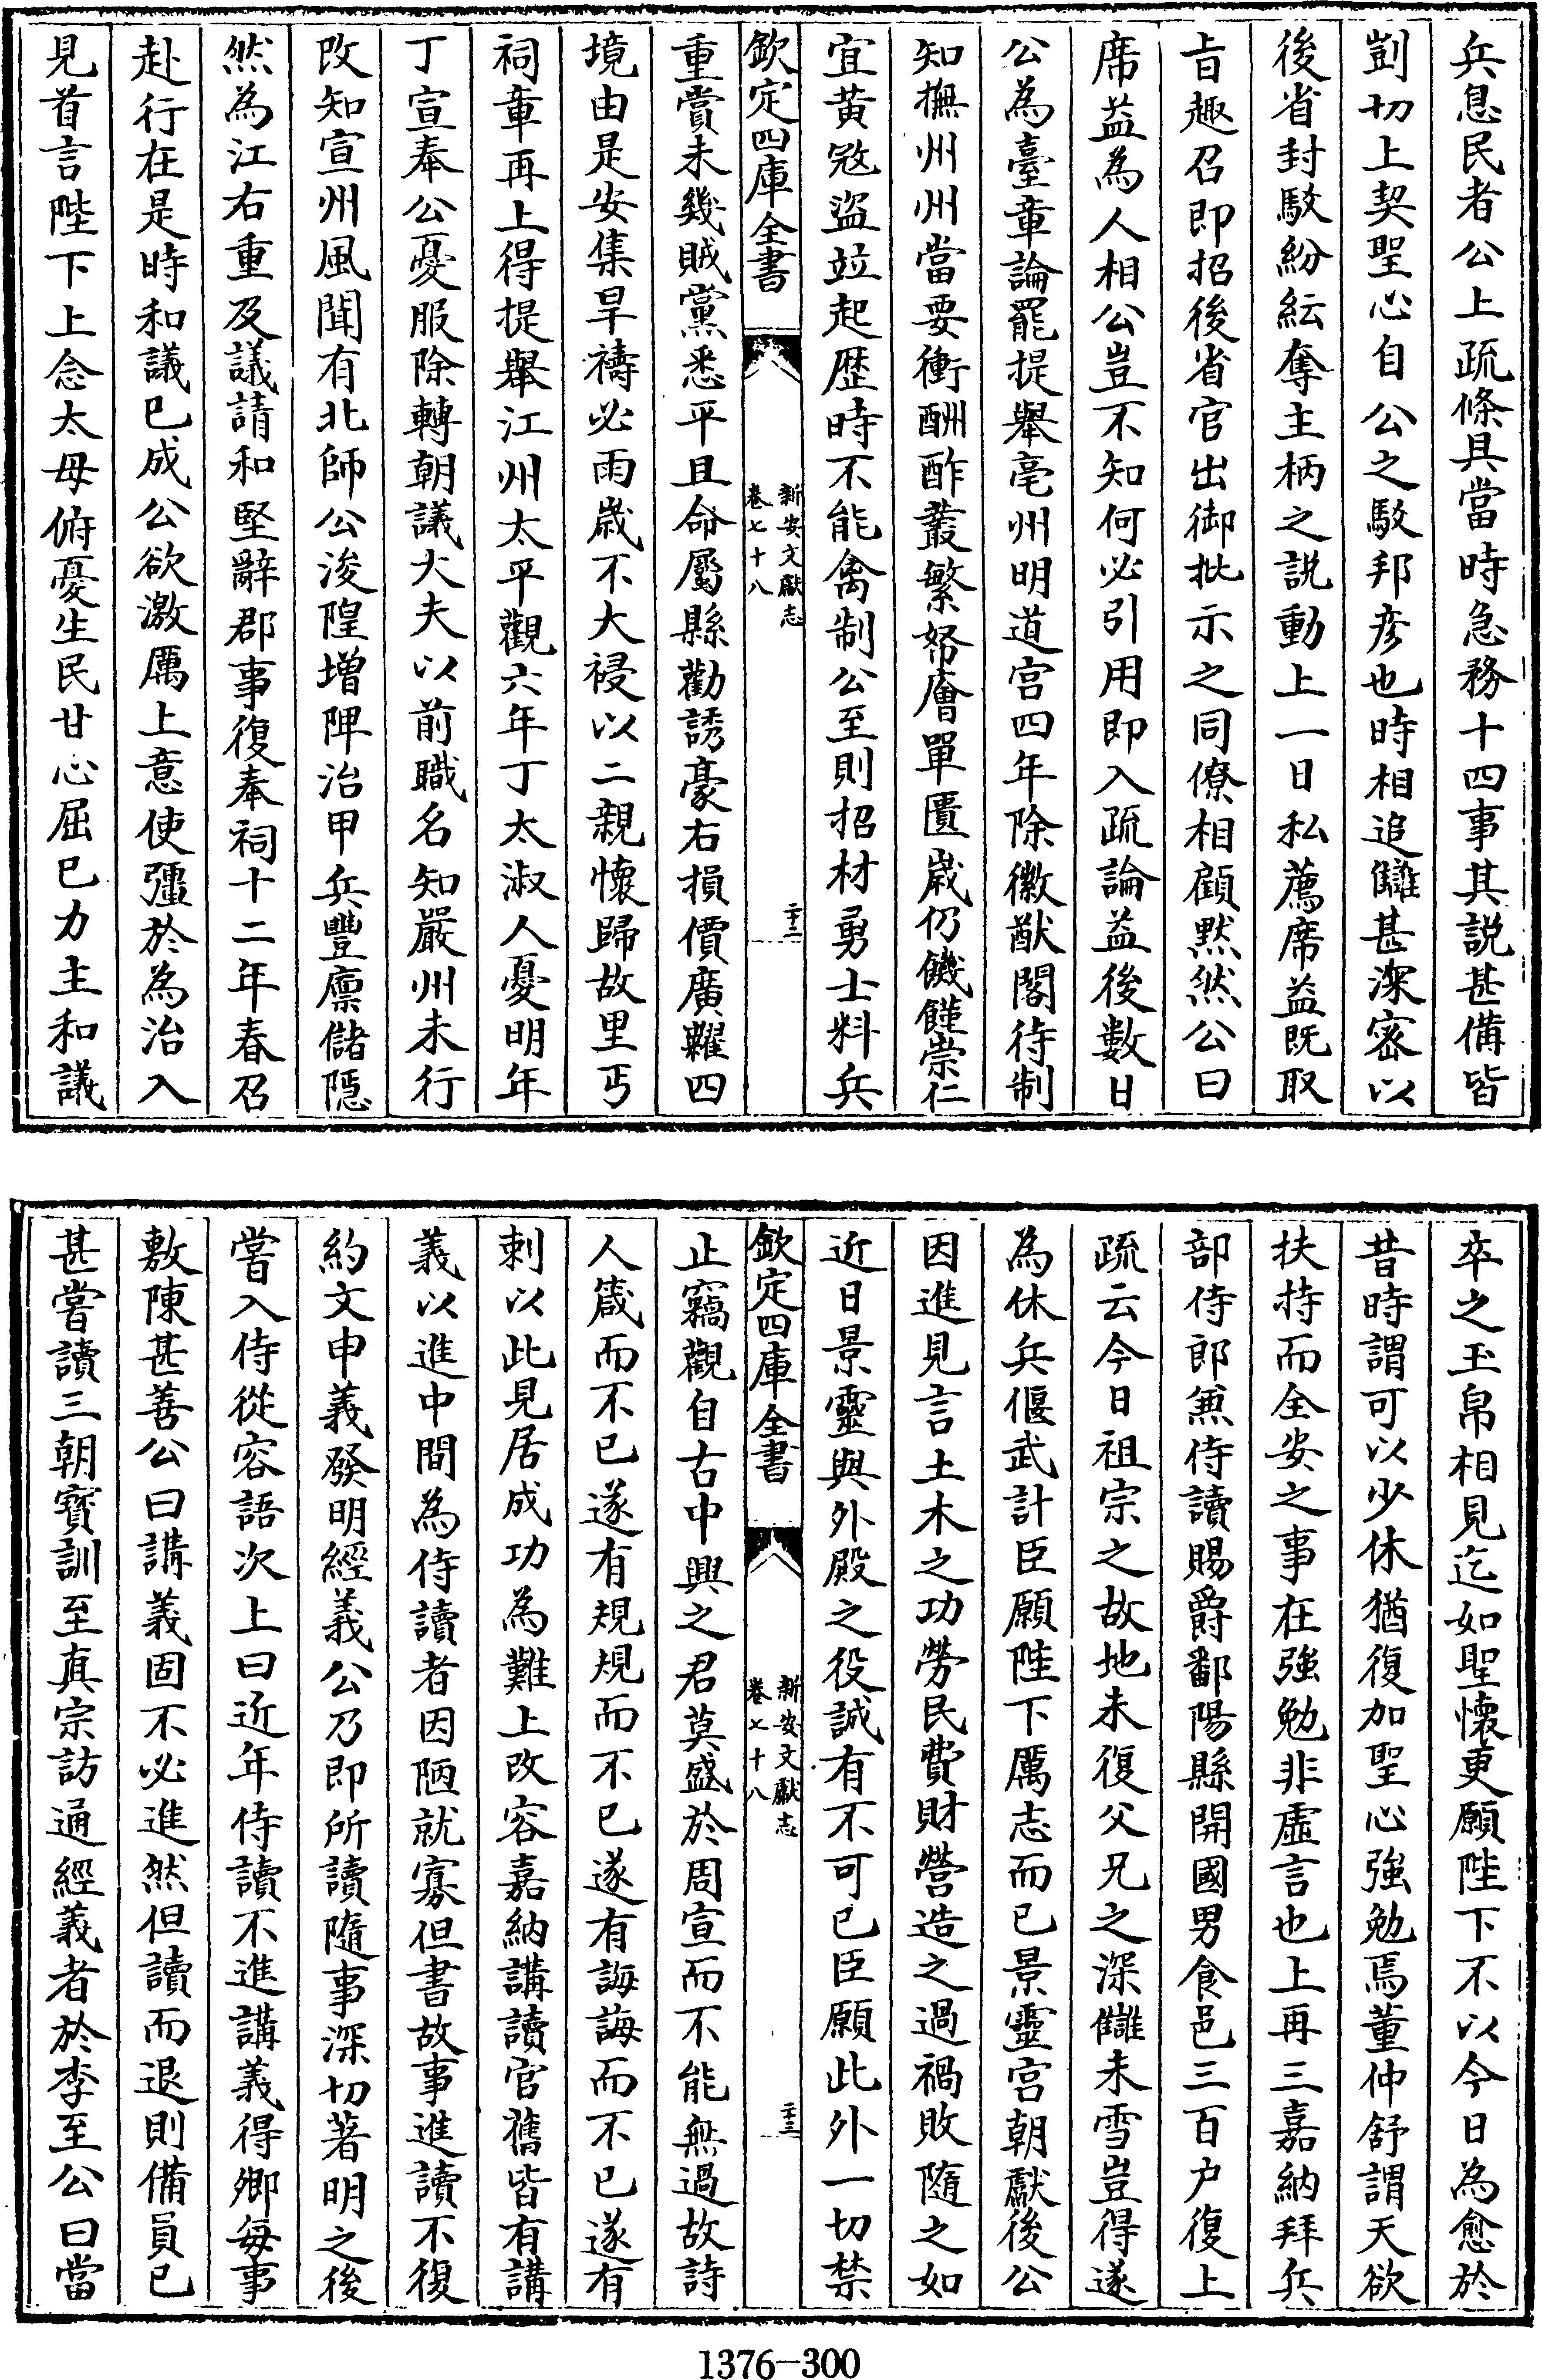 兵息民者公上疏條具當時急務十四事其説甚備皆
剴切上契聖心自公之駮邦彦也時相追讎甚深宻以
後省封駮紛紜奪主柄之説動上一日私薦席益既取
㫖趣召即招後省官出御批示之同僚相顧黙然公曰
席益為人相公豈不知何必引用即入疏論益後數日
公為臺章論罷提舉亳州明道宫四年除徽猷閣待制
知撫州州當要衝酬酢叢繁帑廥單匱歳仍饑饉崇仁
宜黄冦盜竝起歴時不能禽制公至則招材勇士料兵
欽定四庫全書
新安文獻志
卷七十八
二十二
重賞未幾賊黨悉平且命屬縣勸誘豪右損價廣糶四
境由是安集旱禱必雨歳不大祲以二親懐歸故里丐
祠章再上得提舉江州太平觀六年丁太淑人憂明年
丁宣奉公憂服除轉朝議大夫以前職名知嚴州未行
改知宣州風聞有北師公浚隍増陴治甲兵豐廪儲隠
然為江右重及議請和堅辭郡事復奉祠十二年春召
赴行在是時和議已成公欲激厲上意使彊於為治入
見首言陛下上念太母俯憂生民甘心屈已力主和議
卒之玉帛相見迄如聖懐更願陛下不以今日為愈於
昔時謂可以少休猶復加聖心強勉焉董仲舒謂天欲
扶持而全安之事在強勉非虚言也上再三嘉納拜兵
部侍郎兼侍讀賜爵鄱陽縣開國男食邑三百户復上
疏云今日祖宗之故地未復父兄之深讎未雪豈得遂
為休兵偃武計臣願陛下厲志而已景靈宫朝獻後公
因進見言土木之功勞民費財營造之過禍敗隨之如
近日景靈與外殿之役誠有不可已臣願此外一切禁
欽定四庫全書
新安文獻志
卷七十八
二十三
止竊觀自古中興之君莫盛於周宣而不能無過故詩
人箴而不已遂有規規而不已遂有誨誨而不已遂有
刺以此見居成功為難上改容嘉納講讀官舊皆有講
義以進中間為侍讀者因陋就寡但書故事進讀不復
約文申義發明經義公乃即所讀隨事深切著明之後
嘗入侍從容語次上曰近年侍讀不進講義得卿每事
敷陳甚善公曰講義固不必進然但讀而退則備員已
甚嘗讀三朝寳訓至真宗訪通經義者於李至公曰當
1376-300